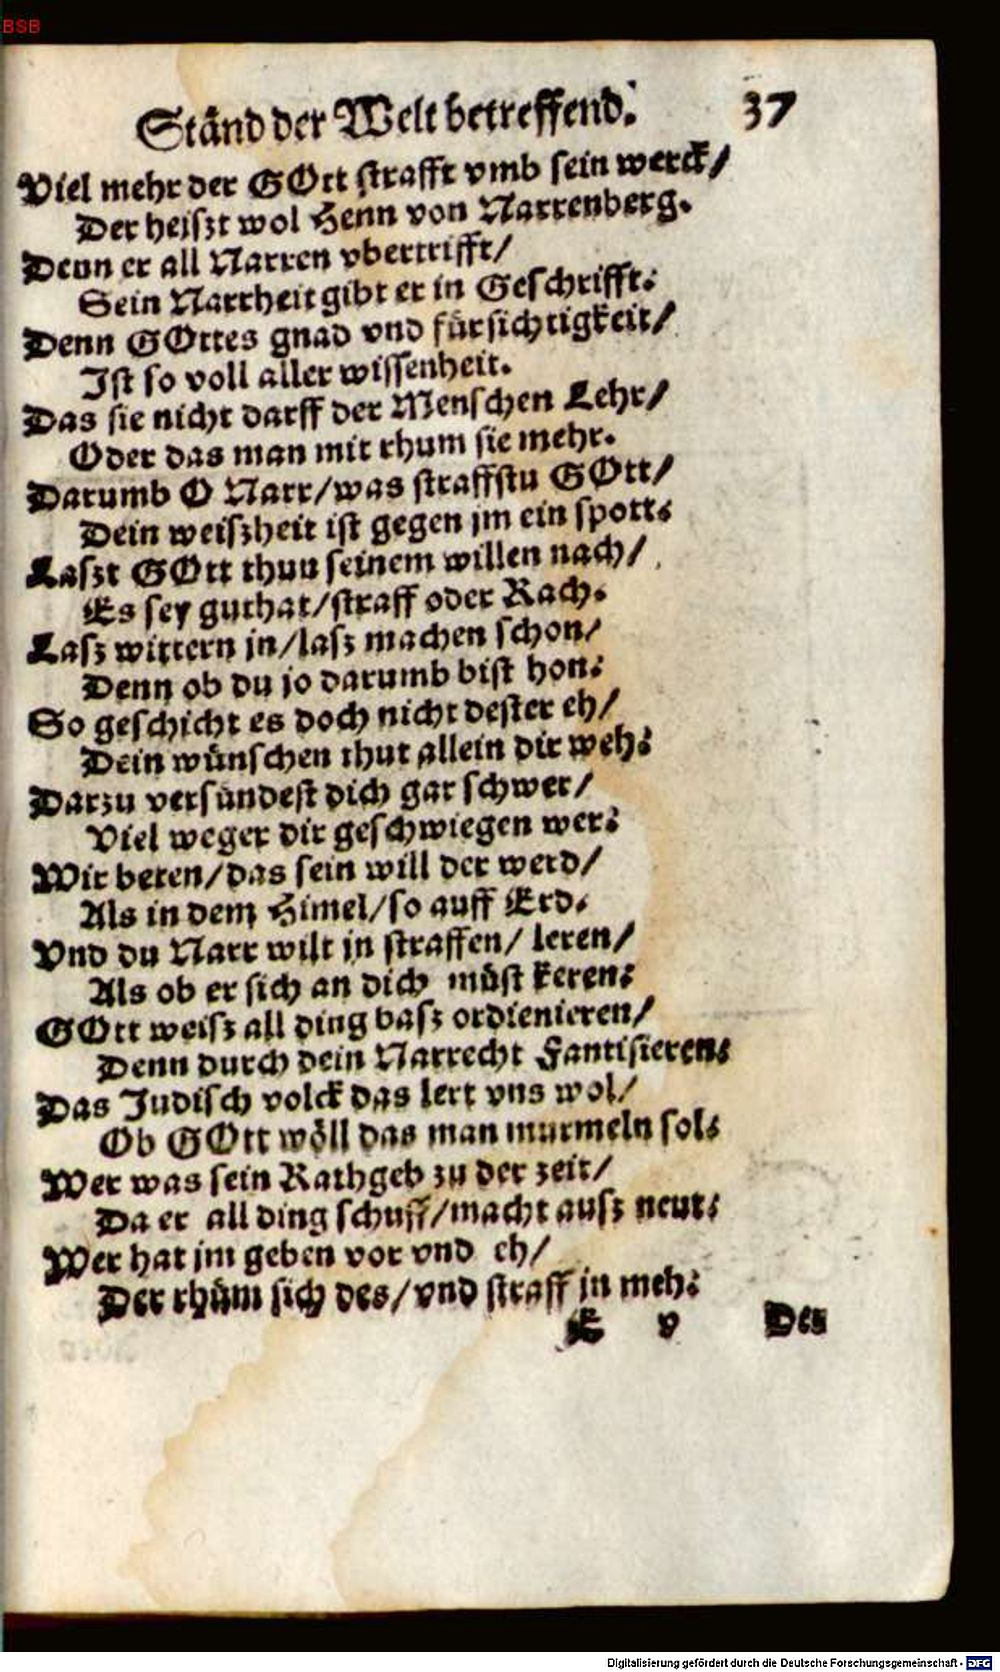 BSB
Ständ der Welt betreffend. 37
Viel mehr der GOtt strafft vmb sein werck/
Der heiſzt wol Henn von Narrenberg.
Denn er all Narren vbertrifft/
Sein Narrheit gibt er in Geſchrifft.
Denn GOttes gnad vnd fürſichtigkeit/
Iſt ſo voll aller wiſſenheit.
Das ſie nicht darff der Menſchen Lehr/
Oder das man mit rhum ſie mehr.
Darumb O Narr/was ſtraffſtu GOtt/
Dein weiſzheit iſt gegen jm ein ſpott.
Laſzt GOtt thun ſeinem willen nach/
Es ſey guthat/ſtraff oder Rach.
Laſz wittern jn/laſz machen ſchon/
Denn ob du jo darumb biſt hon:
So geſchicht es doch nicht deſter eh/
Dein wünſchen thut allein dir weh:
Darzu verſündeſt dich gar ſchwer/
Viel weger dir geſchwiegen wer:
Wir beten/das ſein will der werd/
Als in dem Himel/ſo auff Erd.
Vnd du Narr wilt jn ſtraffen/ leren/
Als ob er ſich an dich müſt keren:
GOtt weiſz all ding baſz ordienieren/
Denn durch dein Narrecht Fantiſieren:
Das Judiſch volck das lert vns wol/
Ob GOtt wöll das man murmeln ſol:
Wer was ſein Rathgeb zu der zeit/
Da er all ding ſchuff/macht auſz neut:
Wer hat jm geben vor vnd eh/
Der rhüm ſich des/vnd ſtraff jn meh:
E v Des
Digitalisierung gefördert durch die Deutsche Forschungsgemeinschaft - DFG